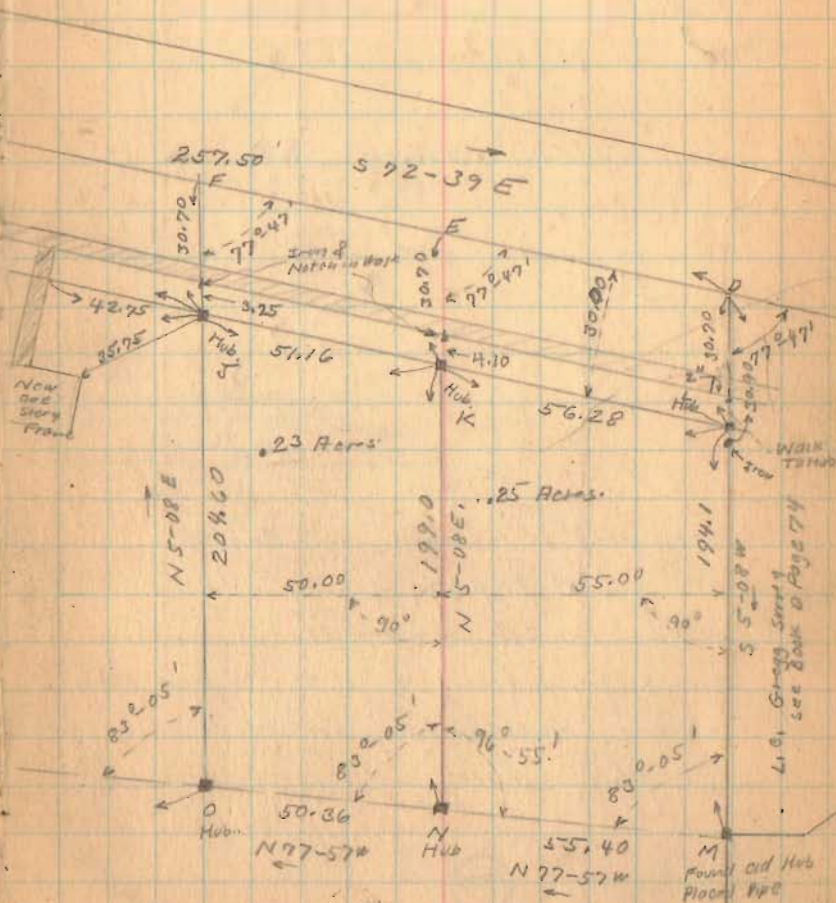 257.50'
S 72-39 E
F
30.70
77°47'
Iron &
Notch in Walk
E
30.70
77°47'
30.00
D
30.70
77°47'
42.75
3.25
35.75
Hub
J
51.16
4.10
Hub
K
56.28
2"
Hub
30.70
New
one
Story
Frame
Walk
Iron
.23 Acres
.25 Acres.
N 5-08 E
204.60
199.0
N 5-08 E.
194.1
S 5-08 W
50.00
90°
55.00
90°
Gregg Survey
see Book D Page 74
83°-05'
83°-05'
96°-55'
83°-05'
O
Hub.
50.36
N 77-57 W
N
Hub
55.40
N 77-57 W
M
Found old Hub
Placed Pipe